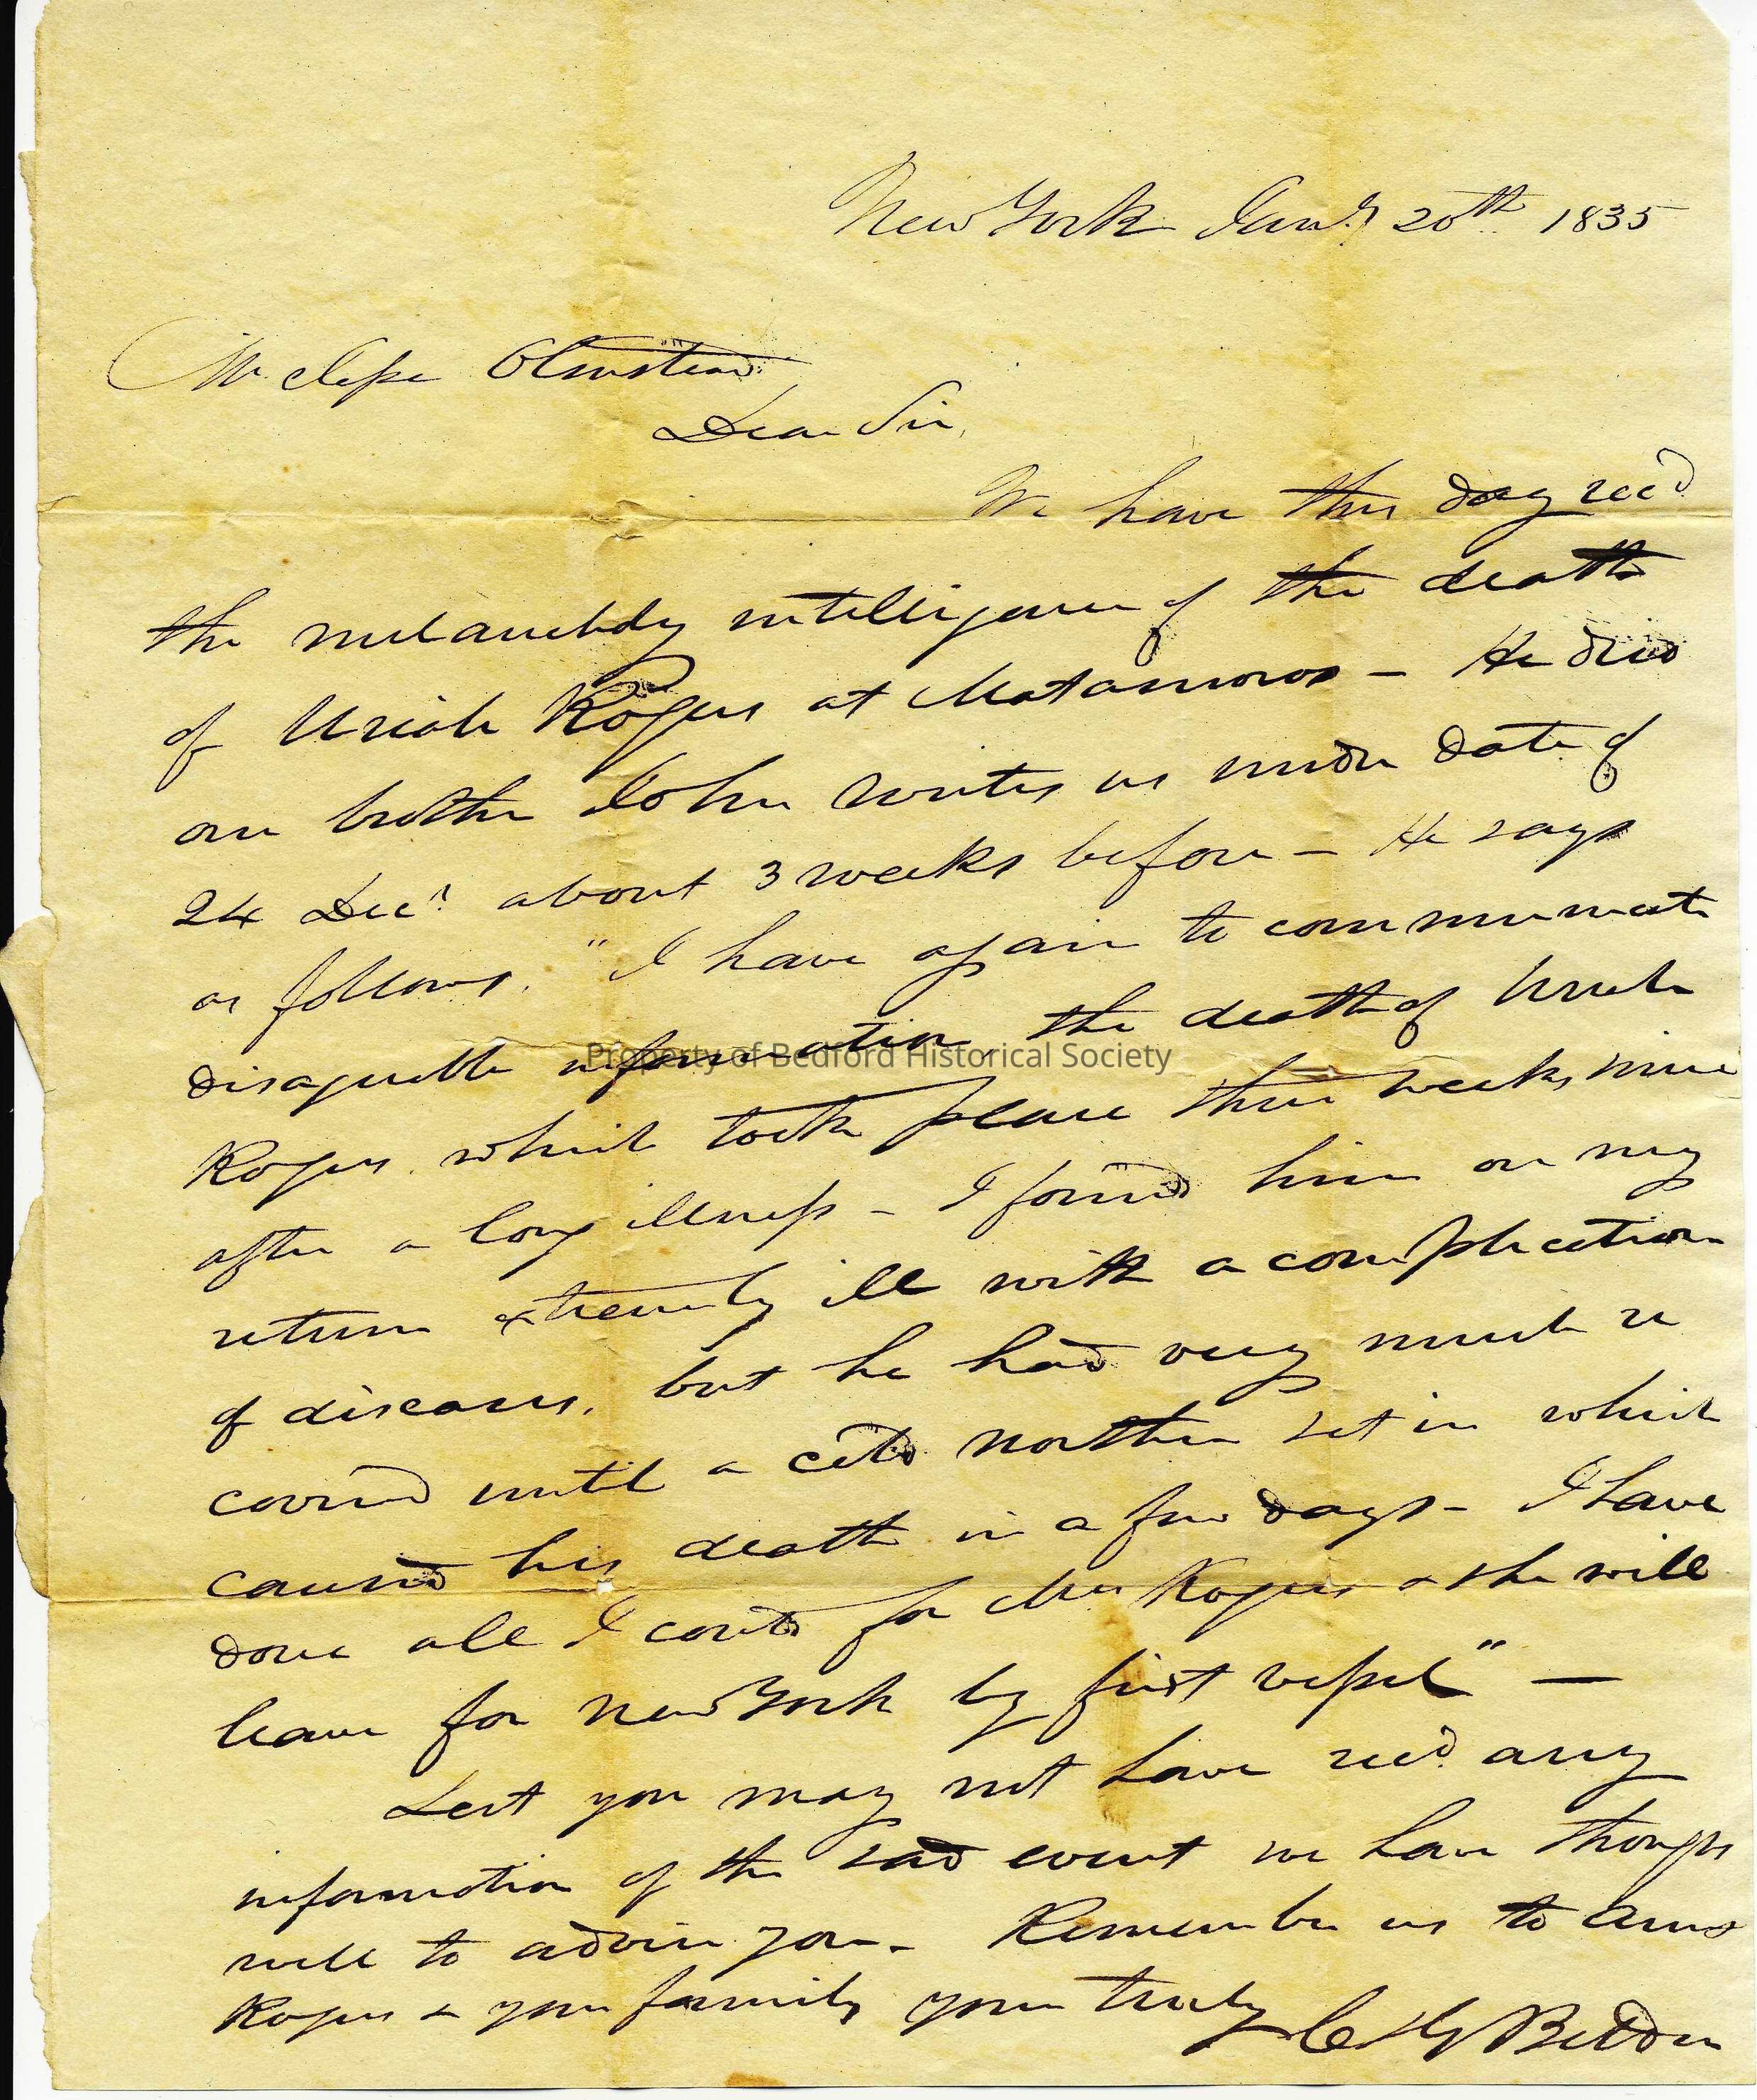 New York Jany 20th 1835
Mr Jesse Olmstead
Dear Sir,
We have this day recd
the melancholy intelligence of the death
of Uriah Rogers at Matamoros – He died
our brother John writes us under date of
24 Decr about 3 weeks before – He says
as follows. "I have again to communicate
disagreeable information the death of Uriah
Property of Bedford Historical Society
Rogers which took place three weeks since
after a long illness – I found him on my
return extremely ill with a complication
of diseases, but he had very much re
covered until a cold norther set in which
caused his death in a few days – I have
done all I could for Mrs Rogers & she will
leave for New York by first vessel" —
Lest you may not have recd any
information of the sad event we have thought
well to advise you – Remember us to
Rogers & your family yours truly
Belden